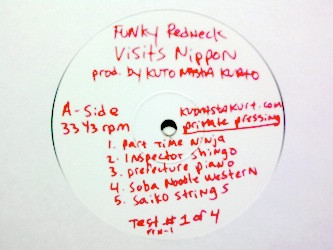 FUNKY Redneck
Visits Nippon
prod. by KUTO MASTA KURTO
A-Side
33 1/3 rpm
KUTMASTAKURT.com
private pressing
1. Part Time Ninja
2. Inspector Shingo
3. Prefecture piano
4. Soba Noodle Western
5. Saiko Strings
Test # 1 of 4